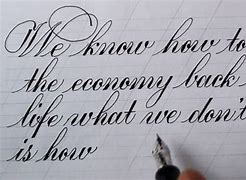 We know how to
the economy back
life what we don't
is how